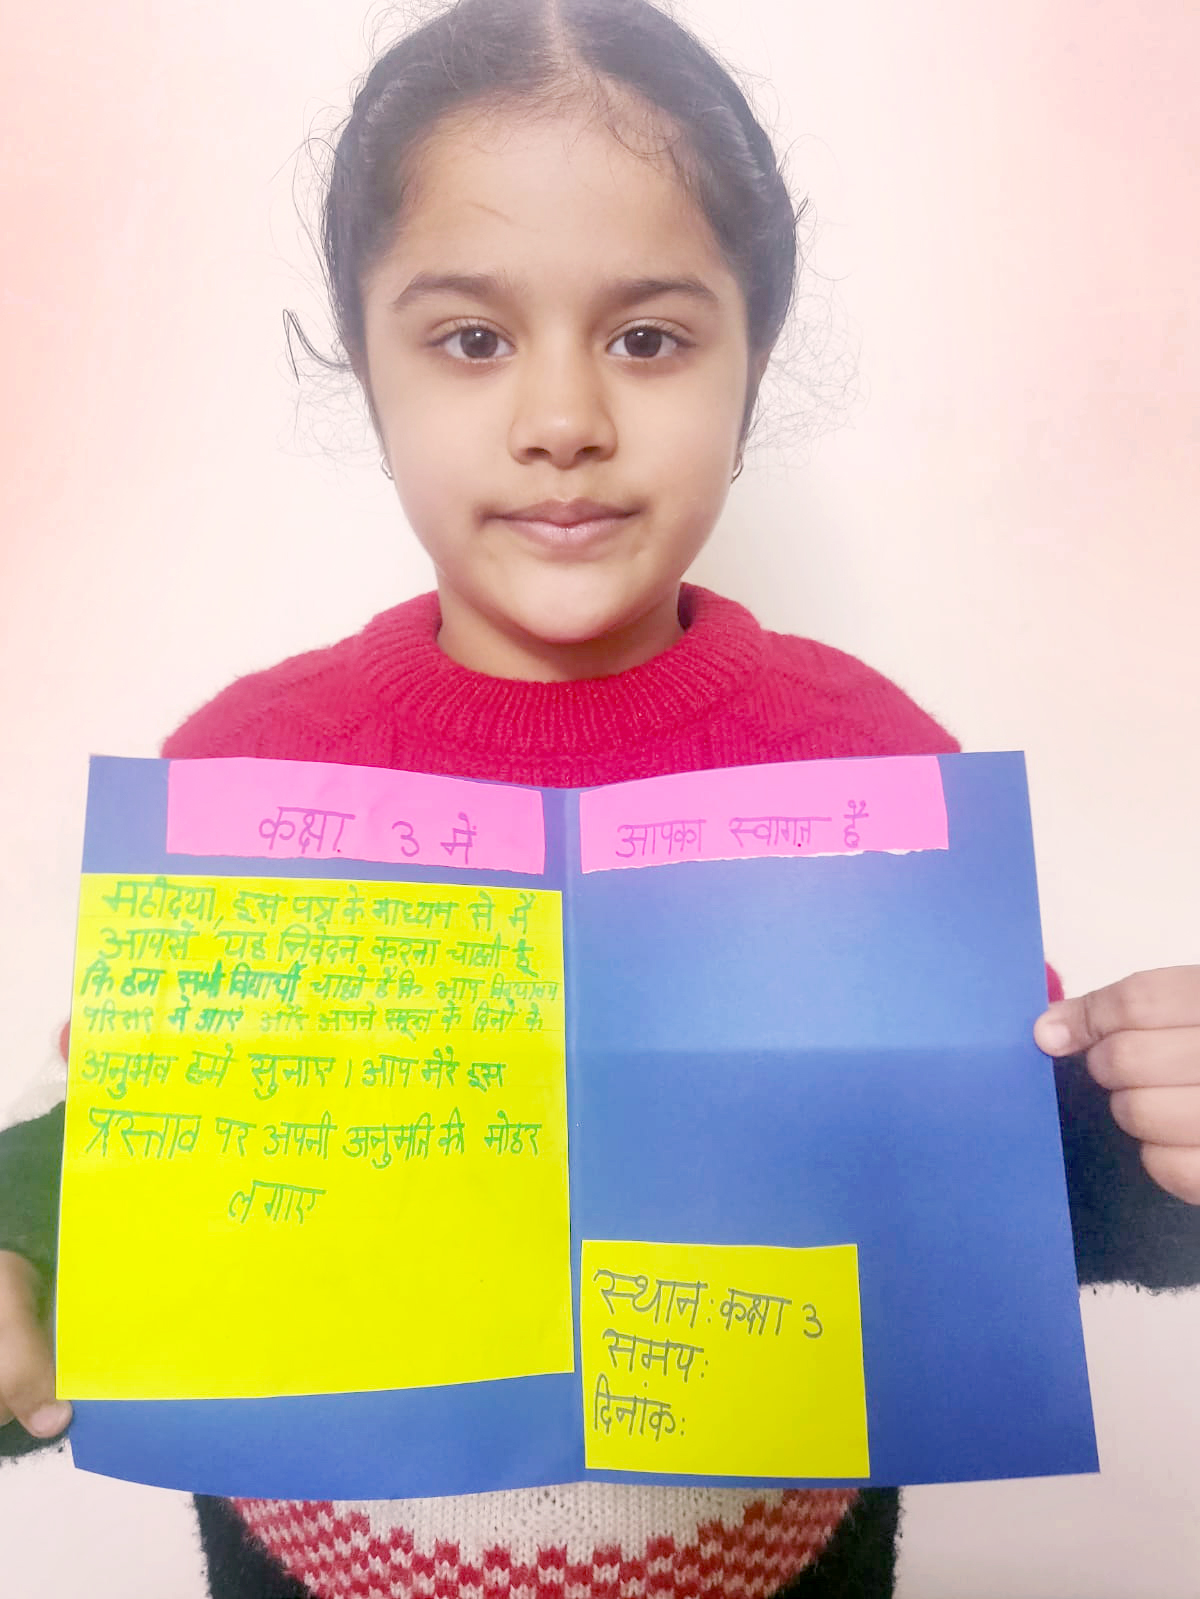 कक्षा 3 में
आपका स्वागत है
महोदया, इस पत्र के माध्यम से मैं
आपसे यह निवेदन करना चाहती हूं
कि हम सभी विद्यार्थी चाहते है कि आप विद्यालय
परिसर में आएं और अपने स्कूल के दिनों के
अनुभव हमें सुनाए। आप मेरे इस
प्रस्ताव पर अपनी अनुमति की मोहर
लगाए
स्थान: कक्षा 3
समय:
दिनांक: